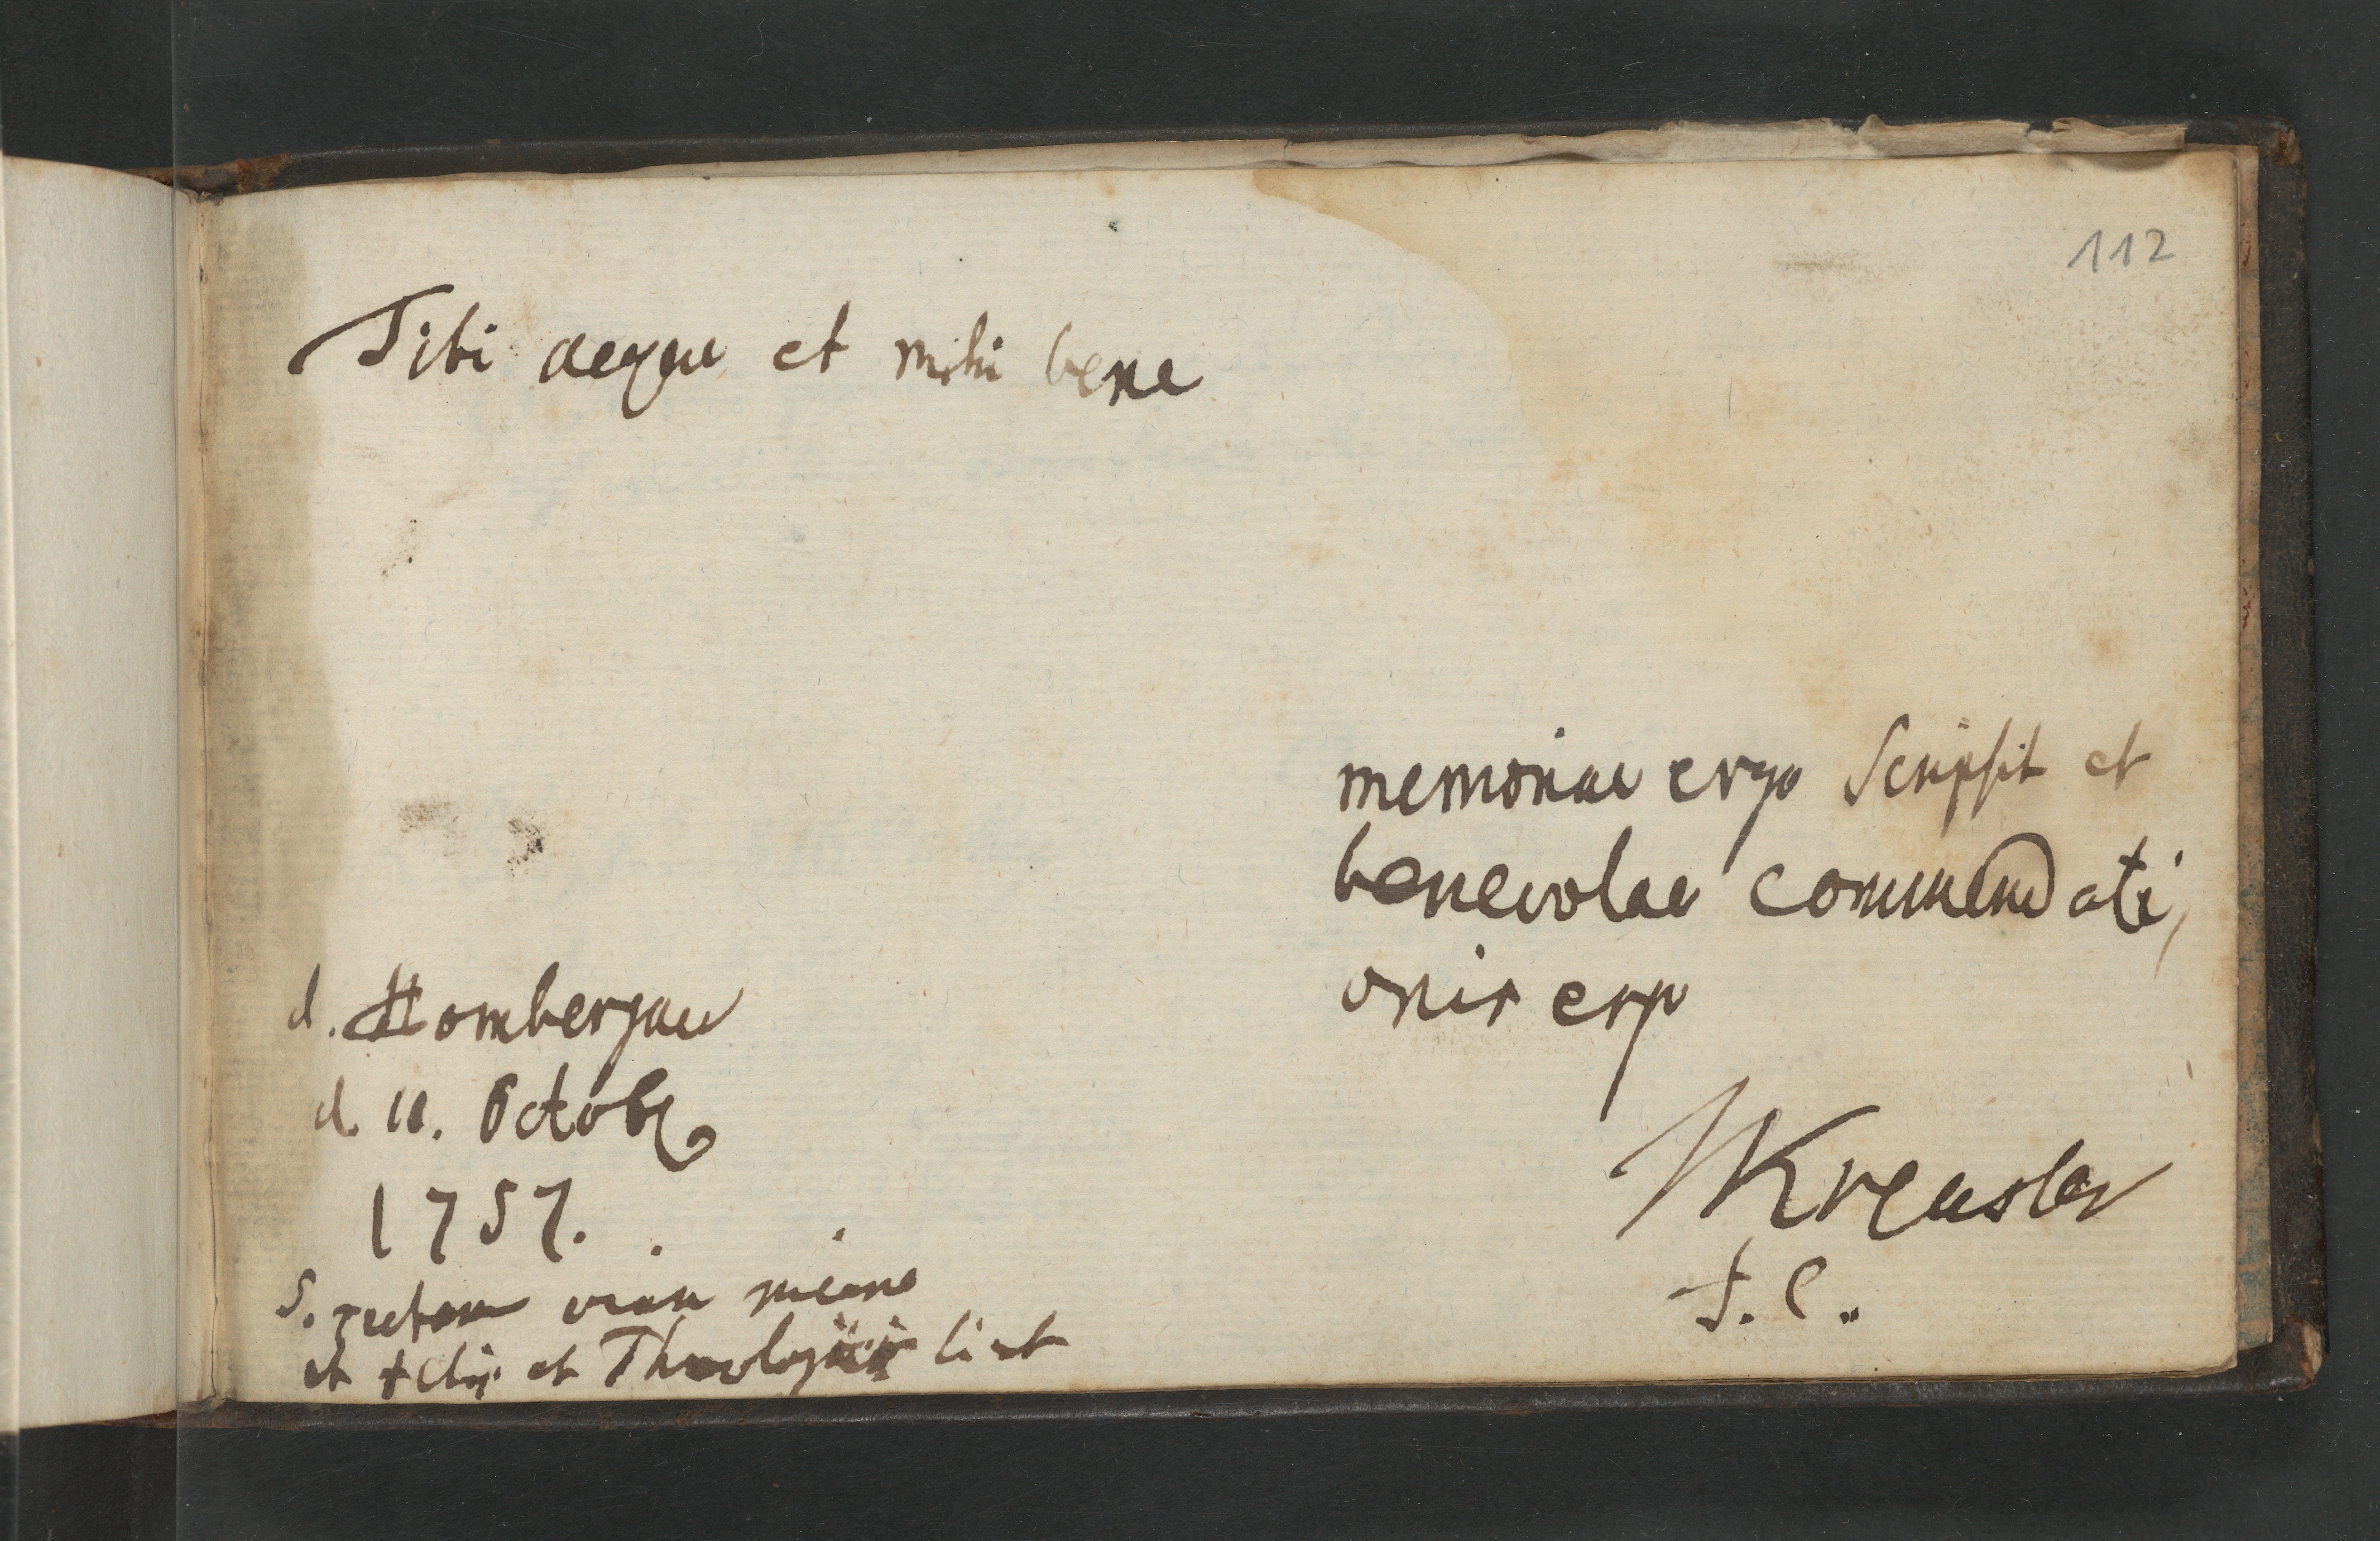 112
Tibi aeque et mihi bene
memoriae ergo scripsit et
benevolae commendati,
onis ergo
Kreusler
d. Hombergae
d. 11. Octobr
1757.
S.
et et Theologiae